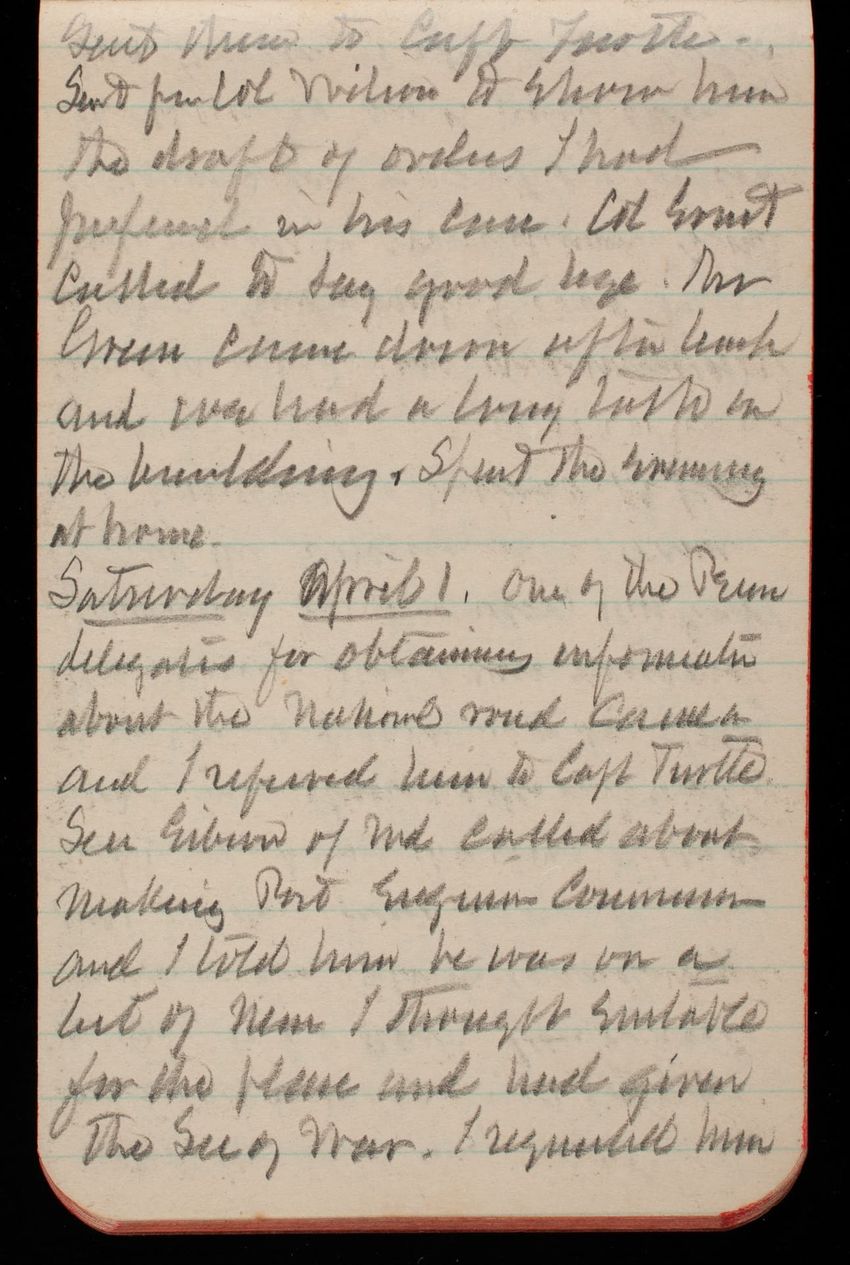 Sent them to Capt Turtle.
Sent for Col Wilson to show him
the draft of orders I had
prepared in his case. Col Grant
called to say good bye. Mr
Green came down after lunch
and we had a long talk on
the building. Spent the evening
at home.
Saturday April 1. One of the Penn
delegates for obtaining information
about the National road came in
and I referred him to Capt Turtle.
Sen Gibson of Md called about
making Post Engineer Commission
and I told him he was on a
list of men I thought suitable
for the place and had given
the Sec of War. I requested him